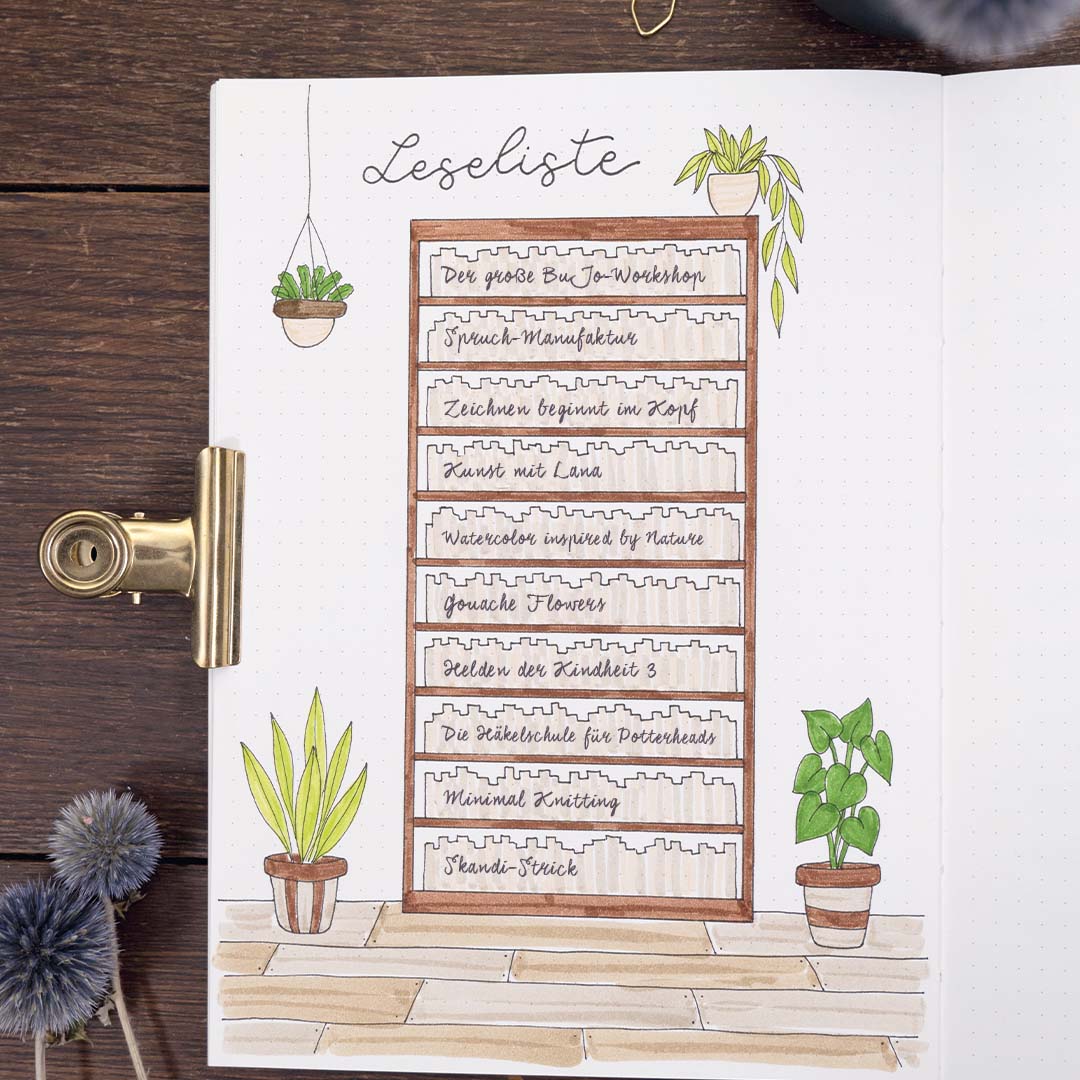 Leseliste
Der große BuJo-Workshop
Spruch-Manufaktur
Zeichnen beginnt im Kopf
Kunst mit Lana
Watercolor inspired by Nature
Gouache Flowers
Helden der Kindheit 3
Die Häkelschule für Potterheads
Minimal Knitting
Skandi-Strick